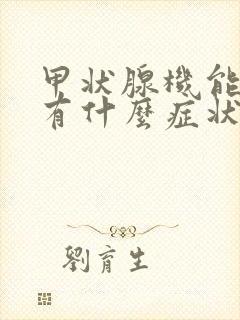 甲状腺機能
有什麼症狀
劉育生